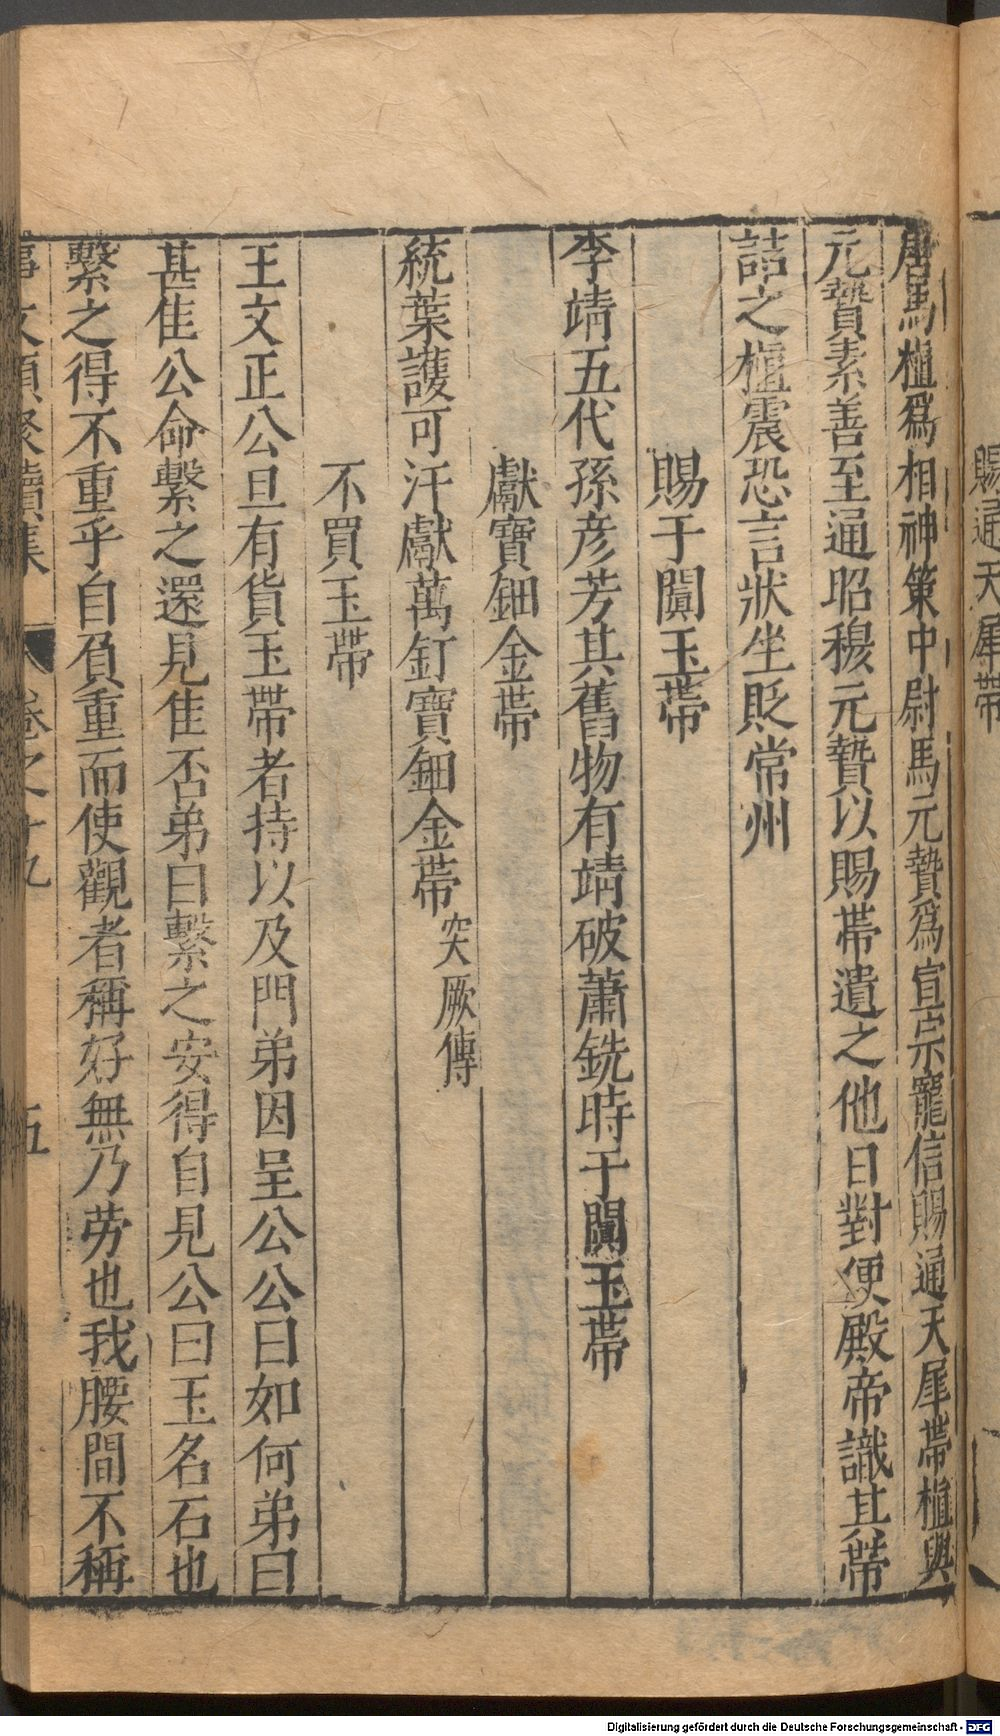 賜通天犀帶
唐馬植爲相神策中尉馬元贄爲宣宗寵信賜通天犀帶植與
元贄素善至通昭穆元贄以賜帶遺之他日對便殿帝識其帶
詰之植震恐言狀坐貶常州
賜于闐玉帶
李靖五代孫彦芳其舊物有靖破蕭銑時于闐玉帶
獻寶鈿金帶
統葉護可汗獻萬釘寶鈿金帶突厥傳
不買玉帶
王文正公旦有貨玉帶者持以及門弟因呈公公曰如何弟曰
甚佳公命繫之還見佳否弟曰繫之安得自見公曰玉名石也
繫之得不重乎自負重而使觀者稱好無乃劳也我腰間不稱
事文類聚續集 卷之十九 五
Digitalisierung gefördert durch die Deutsche Forschungsgemeinschaft - DFG